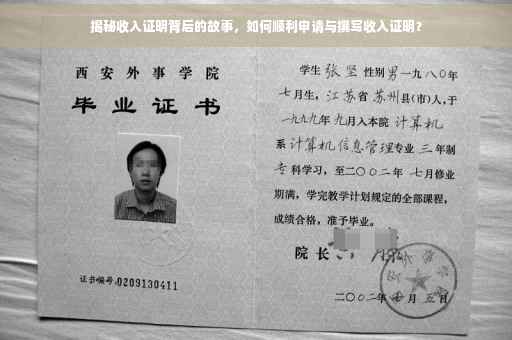 揭秘收入证明背后的故事，如何顺利申请与撰写收入证明？
西安外事学院
毕业证书
证书编号:0209130411
学生 张坚 性别男一九八〇年
七月生，江苏省苏州县(市)人,于
一九九九年九月入本院 计算机
系计算机信息管理专业 三年制
专科学习，至二〇〇二年 七月修业
期满，学完教学计划规定的全部课程，
成绩合格，准予毕业。
院长
二〇〇二年 月五日